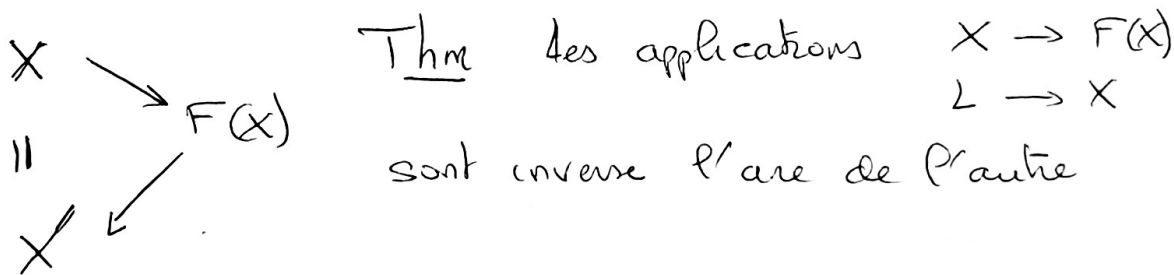 X → F(X)
||
X
Thm des applications X → F(X)
L → X
sont inverse l'une de l'autre